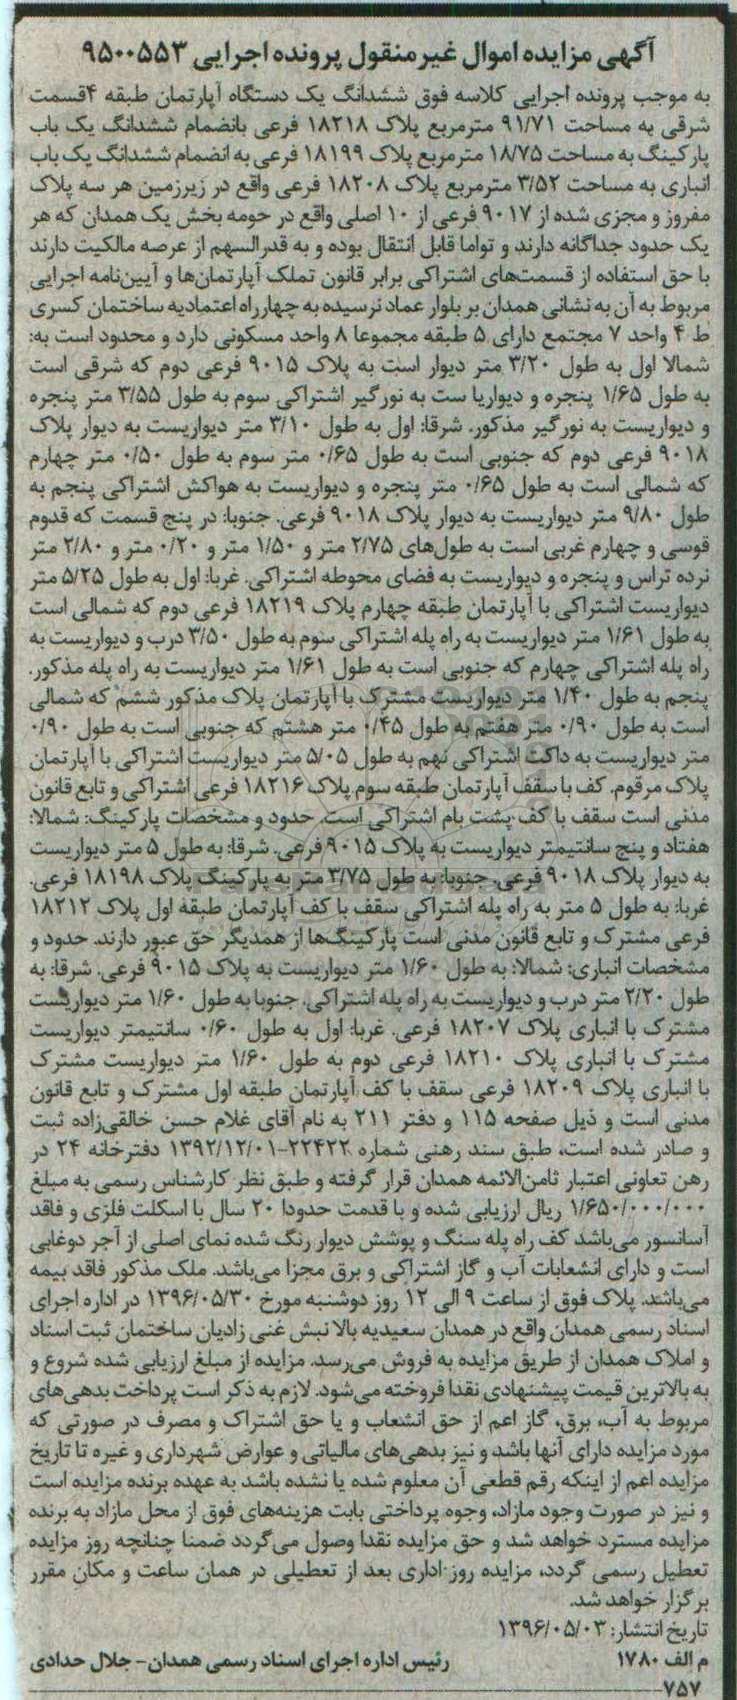 آگهی مزایده اموال غیرمنقول پرونده اجرایی ۹۵۰۰۵۵۳
به موجب پرونده اجرایی کلاسه فوق ششدانگ یک دستگاه آپارتمان طبقه ۴قسمت
شرقی به مساحت ۹۱/۷۱ مترمربع پلاک ۱۸۲۱۸ فرعی بانضمام ششدانگ یک باب
پارکینگ به مساحت ۱۸/۷۵ مترمربع پلاک ۱۸۱۹۹ فرعی به انضمام ششدانگ یک باب
انباری به مساحت ۳/۵۲ مترمربع پلاک ۱۸۲۰۸ فرعی واقع در زیرزمین هر سه پلاک
مفروز و مجزی شده از ۹۰۱۷ فرعی از ۱۰ اصلی واقع در حومه بخش یک همدان که هر
یک حدود جداگانه دارند و تواما قابل انتقال بوده و به قدرالسهم از عرصه مالکیت دارند
با حق استفاده از قسمت‌های اشتراکی برابر قانون تملک آپارتمان‌ها و آیین‌نامه اجرایی
مربوط به آن به نشانی همدان بر بلوار عماد نرسیده به چهارراه اعتمادیه ساختمان کسری
ط ۴ واحد ۷ مجتمع دارای ۵ طبقه مجموعا ۸ واحد مسکونی دارد و محدود است به:
شمالا اول به طول ۳/۲۰ متر دیوار است به پلاک ۹۰۱۵ فرعی دوم که شرقی است
به طول ۱/۶۵ پنجره و دیواریا ست به نورگیر اشتراکی سوم به طول ۳/۵۵ متر پنجره
و دیواریست به نورگیر مذکور. شرقا: اول به طول ۳/۱۰ متر دیواریست به دیوار پلاک
۹۰۱۸ فرعی دوم که جنوبی است به طول ۰/۶۵ متر سوم به طول ۰/۵۰ متر چهارم
که شمالی است به طول ۰/۶۵ متر پنجره و دیواریست به هواکش اشتراکی پنجم به
طول ۹/۸۰ متر دیواریست به دیوار پلاک ۹۰۱۸ فرعی. جنوبا: در پنج قسمت که قدوم
قوسی و چهارم غربی است به طول‌های ۲/۷۵ متر و ۱/۵۰ متر و ۰/۲۰ متر و ۲/۸۰ متر
نرده تراس و پنجره و دیواریست به فضای محوطه اشتراکی. غربا: اول به طول ۵/۲۵ متر
دیواریست اشتراکی با آپارتمان طبقه چهارم پلاک ۱۸۲۱۹ فرعی دوم که شمالی است
به طول ۱/۶۱ متر دیواریست به راه پله اشتراکی سوم به طول ۳/۵۰ درب و دیواریست به
راه پله اشتراکی چهارم که جنوبی است به طول ۱/۶۱ متر دیواریست به راه پله مذکور.
پنجم به طول ۱/۴۰ متر دیواریست مشترک با آپارتمان پلاک مذکور ششم که شمالی
است به طول ۰/۹۰ متر هفتم به طول ۰/۴۵ متر هشتم که جنوبی است به طول ۰/۹۰
متر دیواریست به داکت اشتراکی نهم به طول ۵/۰۵ متر دیواریست اشتراکی با آپارتمان
پلاک مرقوم. کف با سقف آپارتمان طبقه سوم پلاک ۱۸۲۱۶ فرعی اشتراکی و تابع قانون
مدنی است سقف با کف پشت بام اشتراکی است. حدود و مشخصات پارکینگ: شمالا:
هفتاد و پنج سانتیمتر دیواریست به پلاک ۹۰۱۵ فرعی. شرقا: به طول ۵ متر دیواریست
به دیوار پلاک ۹۰۱۸ فرعی. جنوبا: به طول ۳/۷۵ متر به پارکینگ پلاک ۱۸۱۹۸ فرعی.
غربا: به طول ۵ متر به راه پله اشتراکی سقف با کف آپارتمان طبقه اول پلاک ۱۸۲۱۲
فرعی مشترک و تابع قانون مدنی است پارکینگ‌ها از همدیگر حق عبور دارند. حدود و
مشخصات انباری: شمالا: به طول ۱/۶۰ متر دیواریست به پلاک ۹۰۱۵ فرعی. شرقا: به
طول ۲/۲۰ متر درب و دیواریست به راه پله اشتراکی. جنوبا به طول ۱/۶۰ متر دیواریست
مشترک با انباری پلاک ۱۸۲۰۷ فرعی. غربا: اول به طول ۰/۶۰ سانتیمتر دیواریست
مشترک با انباری پلاک ۱۸۲۱۰ فرعی دوم به طول ۱/۶۰ متر دیواریست مشترک
با انباری پلاک ۱۸۲۰۹ فرعی سقف با کف آپارتمان طبقه اول مشترک و تابع قانون
مدنی است و ذیل صفحه ۱۱۵ و دفتر ۲۱۱ به نام آقای غلام حسن خالقی‌زاده ثبت
و صادر شده است، طبق سند رهنی شماره ۲۲۴۲۲-۱۳۹۲/۱۲/۰۱ دفترخانه ۲۴ در
رهن تعاونی اعتبار ثامن‌الائمه همدان قرار گرفته و طبق نظر کارشناس رسمی به مبلغ
۱/۶۵۰/۰۰۰/۰۰۰ ریال ارزیابی شده و با قدمت حدودا ۲۰ سال با اسکلت فلزی و فاقد
آسانسور می‌باشد کف راه پله سنگ و پوشش دیوار رنگ شده نمای اصلی از آجر دوغابی
است و دارای انشعابات آب و گاز اشتراکی و برق مجزا می‌باشد. ملک مذکور فاقد بیمه
می‌باشد. پلاک فوق از ساعت ۹ الی ۱۲ روز دوشنبه مورخ ۱۳۹۶/۰۵/۳۰ در اداره اجرای
اسناد رسمی همدان واقع در همدان سعیدیه بالا نبش غنی زادیان ساختمان ثبت اسناد
و املاک همدان از طریق مزایده به فروش می‌رسد. مزایده از مبلغ ارزیابی شده شروع و
به بالاترین قیمت پیشنهادی نقدا فروخته می‌شود. لازم به ذکر است پرداخت بدهی‌های
مربوط به آب، برق، گاز اعم از حق انشعاب و یا حق اشتراک و مصرف در صورتی که
مورد مزایده دارای آنها باشد و نیز بدهی‌های مالیاتی و عوارض شهرداری و غیره تا تاریخ
مزایده اعم از اینکه رقم قطعی آن معلوم شده یا نشده باشد به عهده برنده مزایده است
و نیز در صورت وجود مازاد، وجوه پرداختی بابت هزینه‌های فوق از محل مازاد به برنده
مزایده مسترد خواهد شد و حق مزایده نقدا وصول می‌گردد ضمنا چنانچه روز مزایده
تعطیل رسمی گردد، مزایده روز اداری بعد از تعطیلی در همان ساعت و مکان مقرر
برگزار خواهد شد.
تاریخ انتشار: ۱۳۹۶/۰۵/۰۳
م الف ۱۷۸۰ رئیس اداره اجرای اسناد رسمی همدان- جلال حدادی
۷۵۷